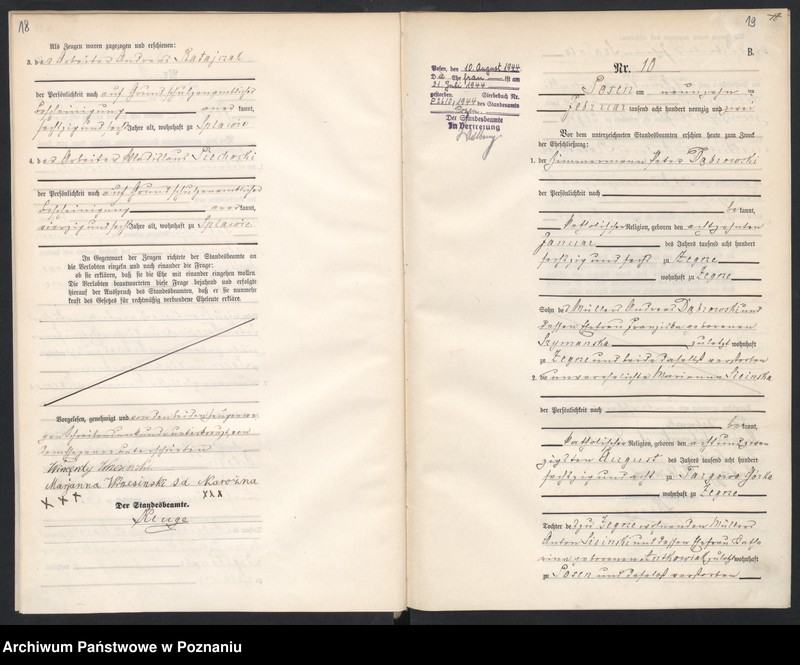 18
Als Zeugen waren zugezogen und erschienen:
3. der Arbeiter Andreas Ratajczak
der Persönlichkeit nach auf Grund schutzamtlicher
Bescheinigung kannt,
sechzig und sechs Jahre alt, wohnhaft zu Splawie
4. der Arbeiter Wladislaus Siechoski
der Persönlichkeit nach auf Grund
Bescheinigung kannt,
vierzig und sechs Jahre alt, wohnhaft zu Splawie
In Gegenwart der Zeugen richtete der Standesbeamte an
die Verlobten einzeln und nach einander die Frage:
ob sie erklären, daß sie die Ehe mit einander eingehen wollen.
Die Verlobten beantworteten diese Frage bejahend und erfolgte
hierauf der Ausspruch des Standesbeamten, daß er sie nunmehr
kraft des Gesetzes für rechtmäßig verbundene Eheleute erkläre.
Vorgelesen, genehmigt und von den beiden Zeugen we-
gen Schreibensunkunde unterkreuzt, von
den Eheleuten unterschrieben
Marjanna
xxx xxx
Der Standesbeamte.
Kluge
19
B.
Nr. 10
Posen am neunzehnten
Februar tausend acht hundert neunzig und zwei
Vor dem unterzeichneten Standesbeamten erschien heute zum Zweck
der Eheschließung:
1. der Zimmermann Peter Dąbrowski
der Persönlichkeit nach
be kannt,
katholischer Religion, geboren den achtzehnten
Januar des Jahres tausend acht hundert
sechzig und sechs zu Zegrze
wohnhaft zu Zegrze
Sohn des Müllers Andreas Dąbrowski und
dessen Ehefrau Franziska geborenen
Szymanska zuletzt wohnhaft
zu Zegrze und beide daselbst verstorben
2. die unverehelichte Marianna Sicinska
der Persönlichkeit nach
be kannt,
katholischer Religion, geboren den acht und zwan-
zigsten August des Jahres tausend acht hundert
sechzig und acht zu Targowa Górka
wohnhaft zu Zegrze
Tochter des zu Zegrze wohnenden Müllers
Anton Sicinski und dessen Ehefrau Katha-
rina geborenen Antkowiak zuletzt wohnhaft
zu Posen und daselbst verstorben
Posen, den 10. August 1944
Die Ehefrau ist am
21. Juli 1944
gestorben. Sterbebuch Nr.
1944 des Standesamts
Posen
Der Standesbeamte
In Vertretung
Archiwum Państwowe w Poznaniu